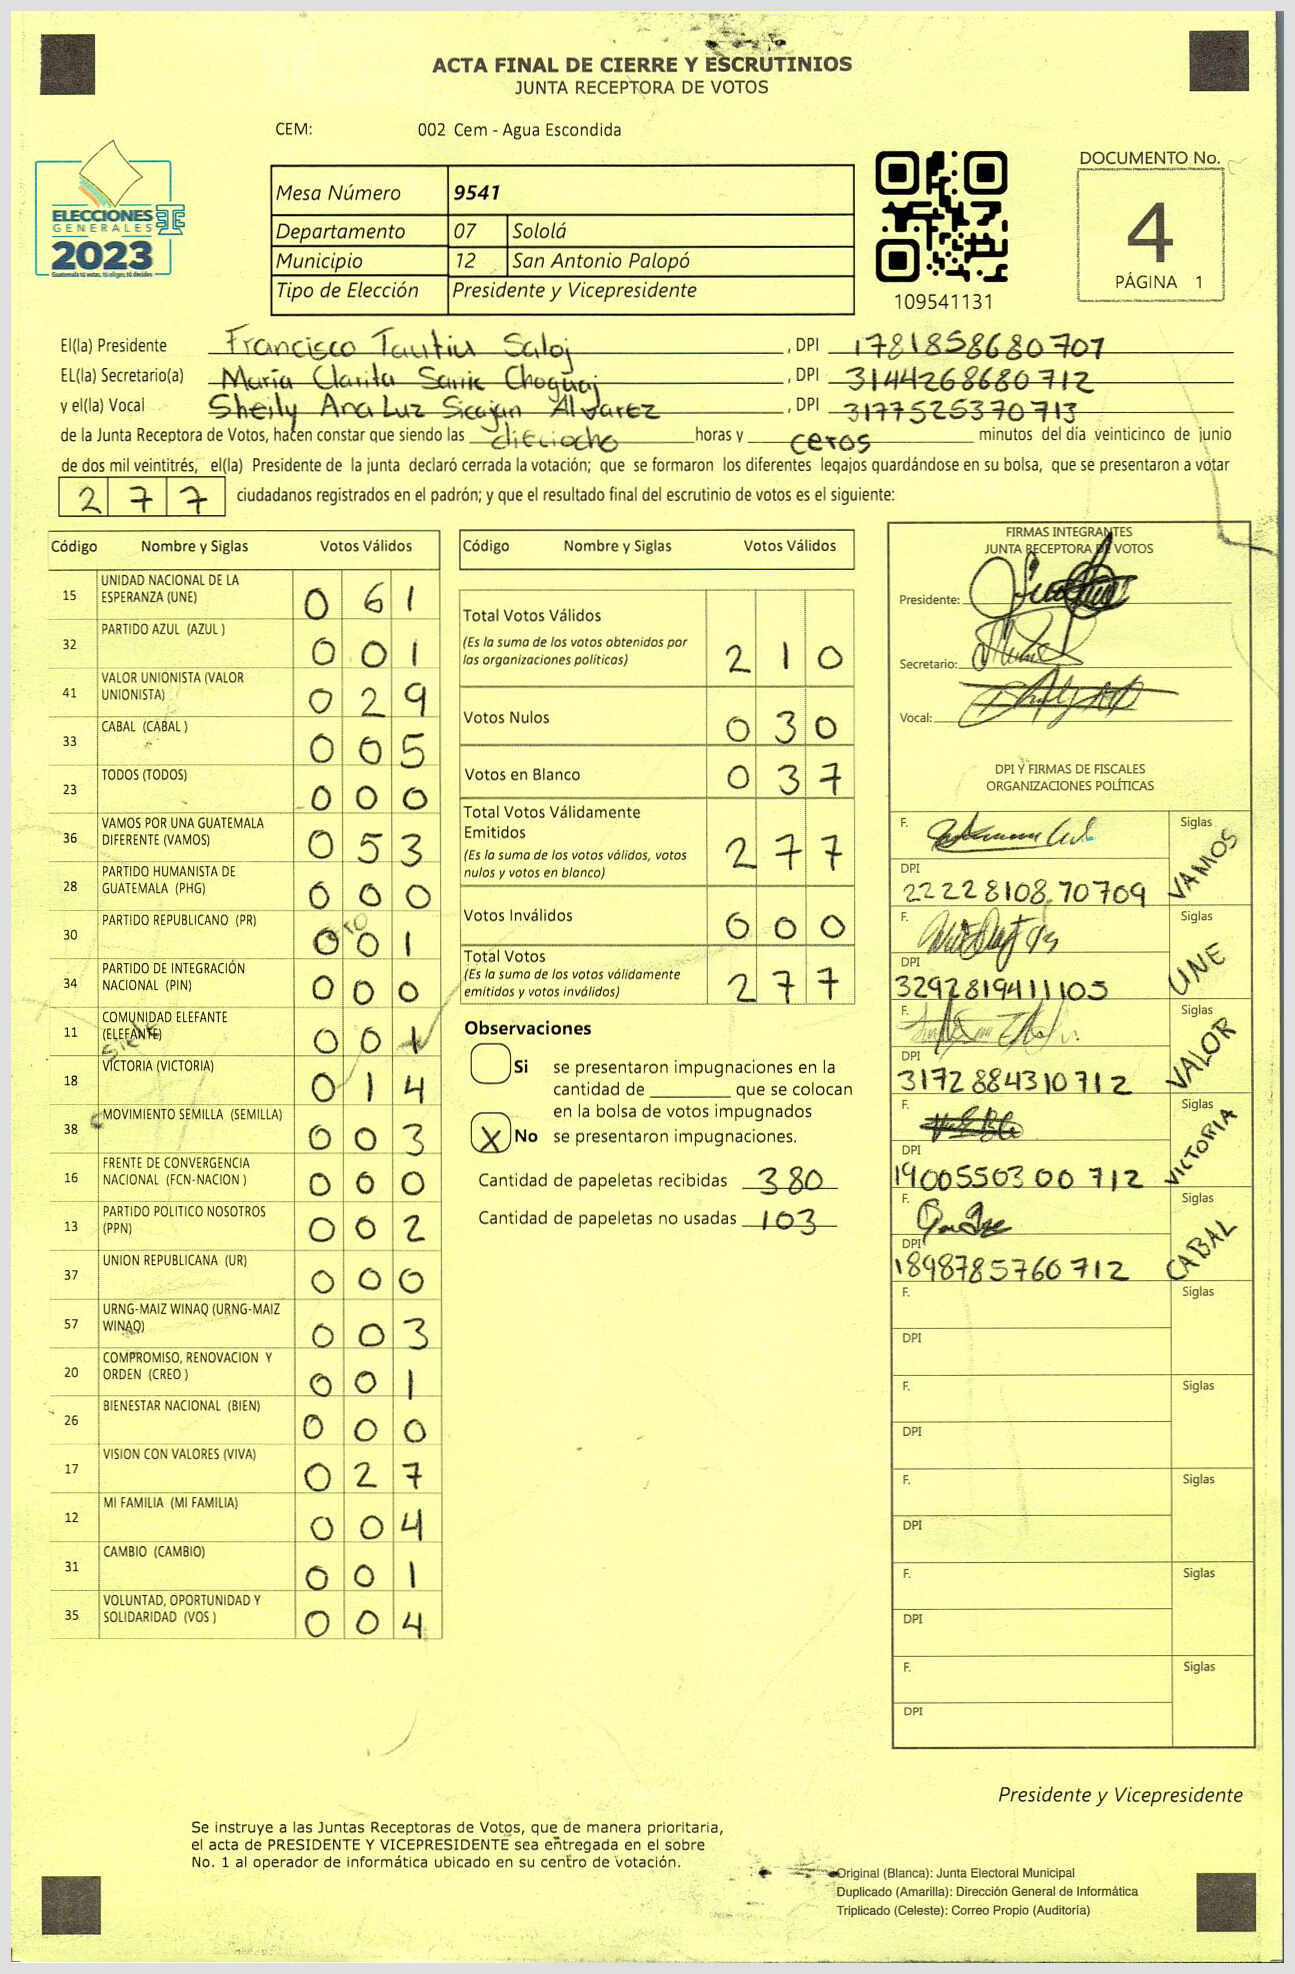 ACTA FINAL DE CIERRE Y ESCRUTINIOS
JUNTA RECEPTORA DE VOTOS
CEM: 002 Cem - Agua Escondida
ELECCIONES
GENERALES
2023
Guatemala tú votas, tú eliges, tú decides
Mesa Número 9541
Departamento 07 Sololá
Municipio 12 San Antonio Palopó
Tipo de Elección Presidente y Vicepresidente
109541131
DOCUMENTO No.
4
PÁGINA 1
El(la) Presidente Francisco Tautiu Saloj, DPI 1781858680701
EL(la) Secretario(a) María Clarita Choguaj, DPI 3144268680712
y el(la) Vocal Sheily Ana Luz Sicajan Alvarez, DPI 3177525370713
de la Junta Receptora de Votos, hacen constar que siendo las dieciocho horas y ceros minutos del día veinticinco de junio
de dos mil veintitrés, el(la) Presidente de la junta declaró cerrada la votación; que se formaron los diferentes legajos guardándose en su bolsa, que se presentaron a votar
277 ciudadanos registrados en el padrón; y que el resultado final del escrutinio de votos es el siguiente:
Código Nombre y Siglas Votos Válidos
15 UNIDAD NACIONAL DE LA ESPERANZA (UNE) 061
32 PARTIDO AZUL (AZUL ) 001
41 VALOR UNIONISTA (VALOR UNIONISTA) 029
33 CABAL (CABAL ) 005
23 TODOS (TODOS) 000
36 VAMOS POR UNA GUATEMALA DIFERENTE (VAMOS) 053
28 PARTIDO HUMANISTA DE GUATEMALA (PHG) 000
30 PARTIDO REPUBLICANO (PR) 001
34 PARTIDO DE INTEGRACIÓN NACIONAL (PIN) 000
11 COMUNIDAD ELEFANTE (ELEFANTE) 001
18 VICTORIA (VICTORIA) 014
38 MOVIMIENTO SEMILLA (SEMILLA) 003
16 FRENTE DE CONVERGENCIA NACIONAL (FCN-NACION ) 000
13 PARTIDO POLITICO NOSOTROS (PPN) 002
37 UNION REPUBLICANA (UR) 000
57 URNG-MAIZ WINAQ (URNG-MAIZ WINAQ) 003
20 COMPROMISO, RENOVACION Y ORDEN (CREO ) 001
26 BIENESTAR NACIONAL (BIEN) 000
17 VISION CON VALORES (VIVA) 027
12 MI FAMILIA (MI FAMILIA) 004
31 CAMBIO (CAMBIO) 001
35 VOLUNTAD, OPORTUNIDAD Y SOLIDARIDAD (VOS ) 004
Código Nombre y Siglas Votos Válidos
Total Votos Válidos
(Es la suma de los votos obtenidos por
las organizaciones políticas) 210
Votos Nulos 030
Votos en Blanco 037
Total Votos Válidamente
Emitidos
(Es la suma de los votos válidos, votos
nulos y votos en blanco) 277
Votos Inválidos 000
Total Votos
(Es la suma de los votos válidamente
emitidos y votos inválidos) 277
Observaciones
Si se presentaron impugnaciones en la
cantidad de ________ que se colocan
en la bolsa de votos impugnados
X No se presentaron impugnaciones.
Cantidad de papeletas recibidas 380
Cantidad de papeletas no usadas 103
FIRMAS INTEGRANTES
JUNTA RECEPTORA DE VOTOS
Presidente:
Secretario:
Vocal:
DPI Y FIRMAS DE FISCALES
ORGANIZACIONES POLÍTICAS
F. Siglas VAMOS
DPI 2222810870709
F. Siglas UNE
DPI 3292819411105
F. Siglas VALOR
DPI 3172884310712
F. Siglas VICTORIA
DPI 1900550300712
F. Siglas CABAL
DPI 1898785760712
F. Siglas
DPI
F. Siglas
DPI
F. Siglas
DPI
F. Siglas
DPI
F. Siglas
DPI
Presidente y Vicepresidente
Se instruye a las Juntas Receptoras de Votos, que de manera prioritaria,
el acta de PRESIDENTE Y VICEPRESIDENTE sea entregada en el sobre
No. 1 al operador de informática ubicado en su centro de votación.
Original (Blanca): Junta Electoral Municipal
Duplicado (Amarilla): Dirección General de Informática
Triplicado (Celeste): Correo Propio (Auditoría)